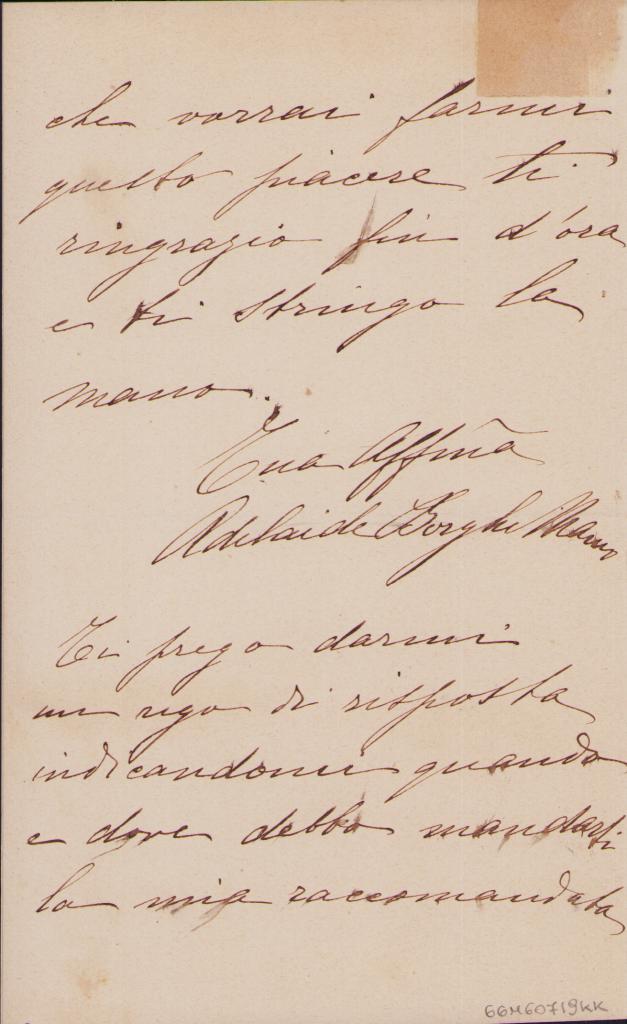 che vorrai farmi
questo piacere ti
ringrazio fin d'ora
e ti stringo la
mano.
Tua Affma
Adelaide Borghi Mamo
Ti prego darmi
un rigo di risposta
indicandomi quando
e dove debbo mandarti
la mia raccomandata
66M60719KK